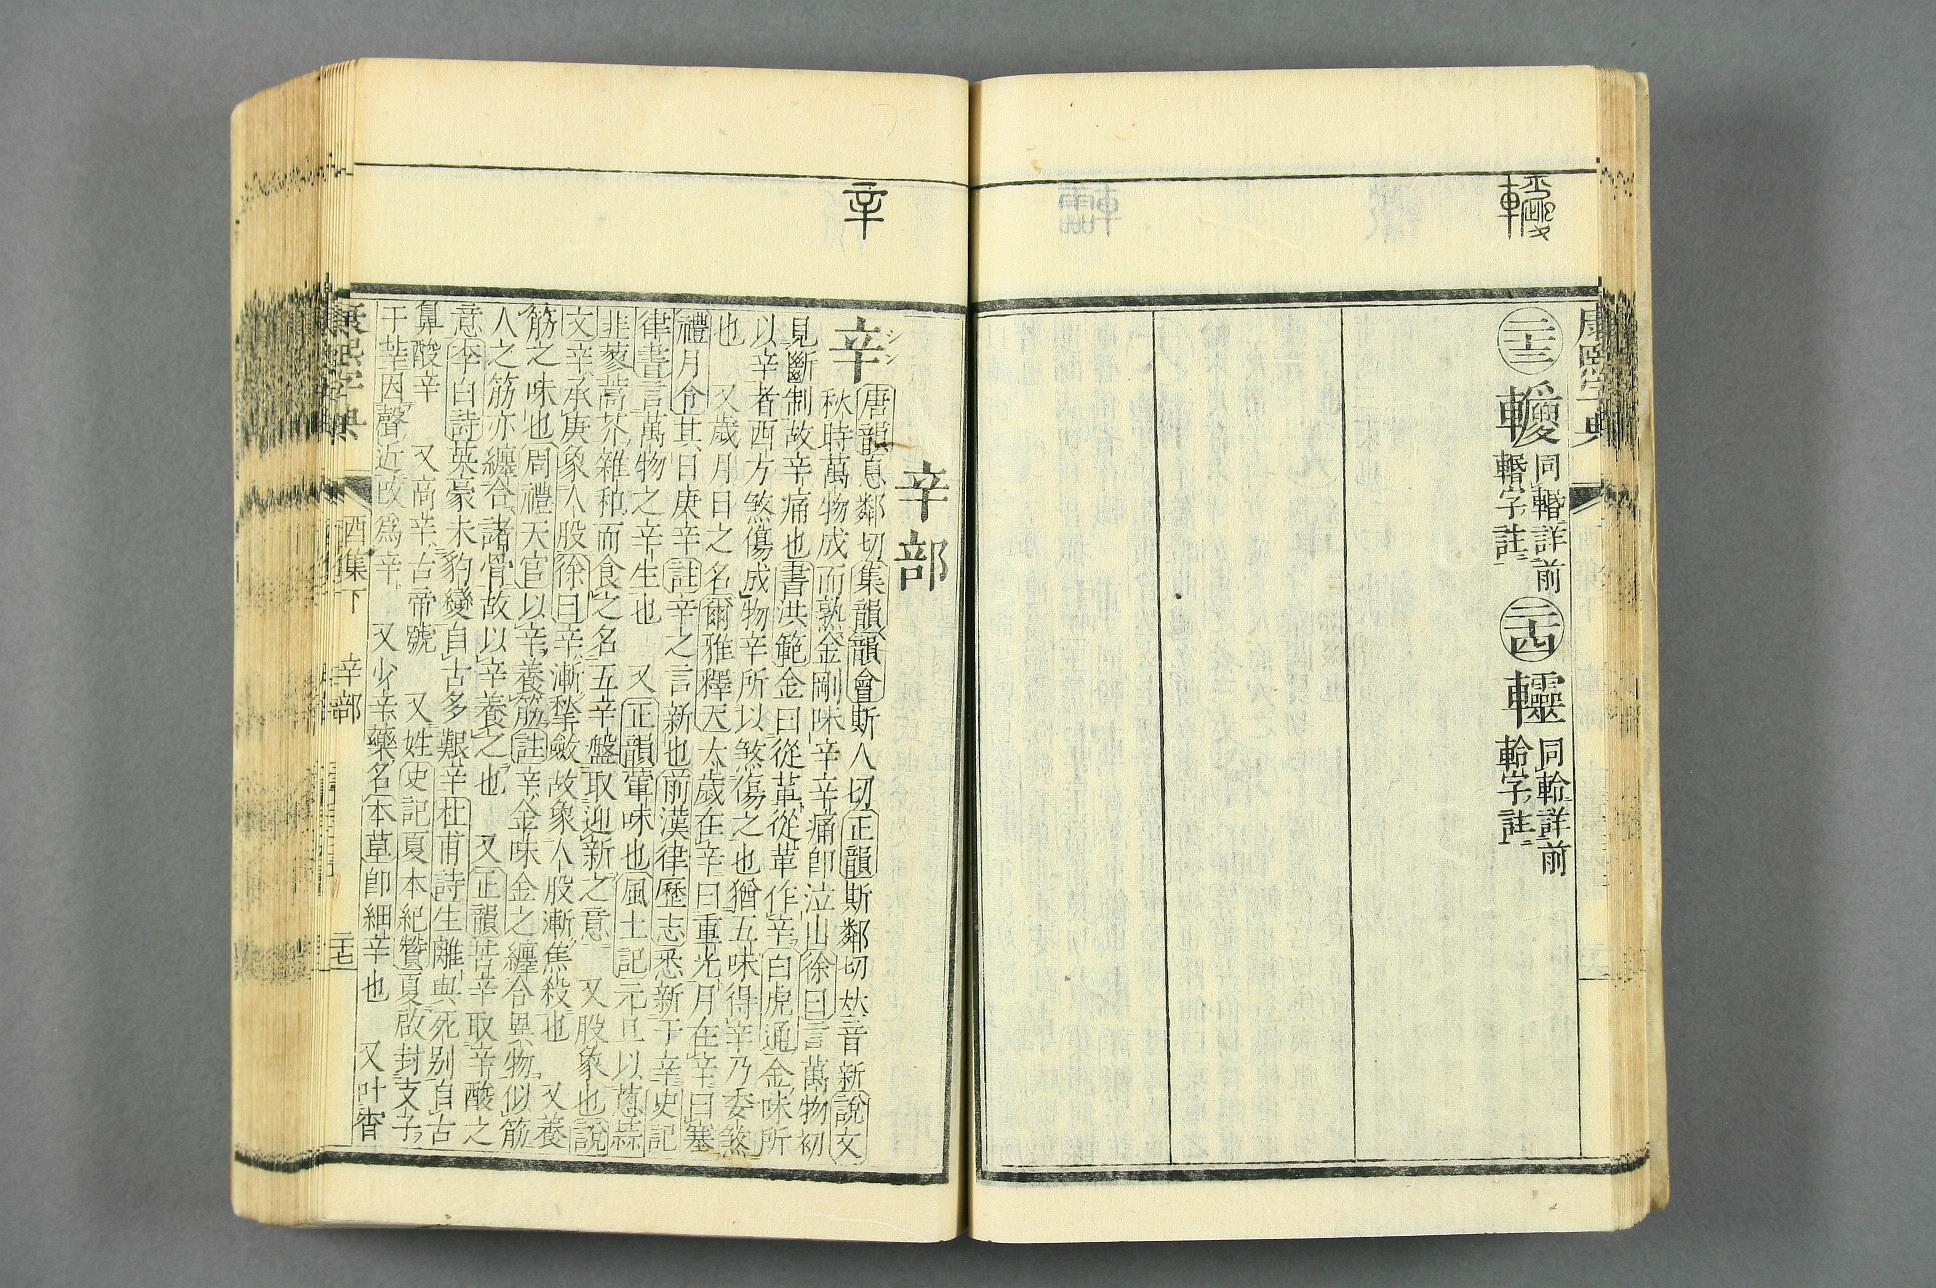 康熙字典
二十三
同䡰詳前
䡰字註
二十四
轜
同軨詳前
軨字註
辛
辛部
辛
シン
唐韻息鄰切集韻韻會斯人切正韻斯鄰切𠀤音新說文
秋時萬物成而熟金剛味辛辛痛卽泣出徐曰言萬物初
見斷制故辛痛也書洪範金曰從革從革作辛白虎通金味所
以辛者西方煞傷成物辛所以煞傷之也猶五味得辛乃委煞
也 又歲月日之名爾雅釋天太歲在辛曰重光月在辛曰塞
禮月令其日庚辛註辛之言新也前漢律歷志悉新于辛史記
律書言萬物之辛生也 又正韻葷味也風土記元旦以蔥蒜
韭蓼蒿芥雜和而食之名五辛盤取迎新之意 又股象也說
文辛承庚象人股徐曰辛漸揫斂故象人股漸焦殺也 又養
筋之味也周禮天官以辛養筋註辛金味金之纏合異物似筋
人之筋亦纏合諸骨故以辛養之也 又正韻苦辛取辛酸之
意李白詩英豪未豹變自古多艱辛杜甫詩生離與死別自古
鼻酸辛 又高辛古帝號 又姓史記夏本紀贊夏啟封支子
于莘因聲近改爲辛 又少辛藥名本草卽細辛也 又叶
康熙字典
酉集下
辛部
二十七